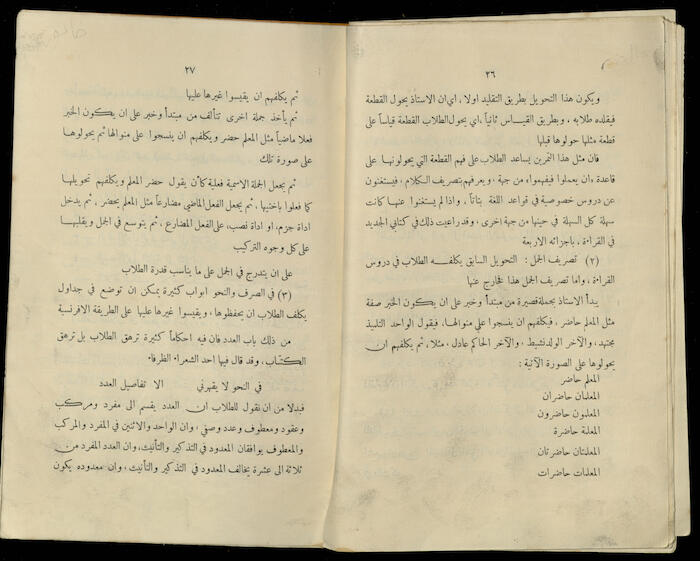 ٢٦
ويكون هذا التحويل بطريق التقليد اولا ، اي ان الاستاذ يحول القطعة
فيقلده طلابه ، وبطريق القياس ثانياً ، اي يحول الطلاب القطعة قياساً على
قطعة مثلها حولوها قبلها
فان مثل هذا التمرين يساعد الطلاب على فهم القطعة التي يحولونها على
قاعدة «ان يعملوا ليفهموا» من جهة ، ويعرفهم بتصريف الكلام ، فيستغنون
عن دروس خصوصية في قواعد اللغة بتاتاً ، واذا لم يستغنوا عنها كانت
سهلة كل السهلة في حينها من جهة اخرى ، وقد راعيت ذلك في كتابي الجديد
في القراءة ، باجزائه الاربعة
(٢) تصريف الجمل : التحويل السابق يكلفه الطلاب في دروس
القراءة ، واما تصريف الجمل هذا فخارج عنها
يبدأ الاستاذ بجملة قصيرة من مبتدأ وخبر على ان يكون الخبر صفة
مثل المعلم حاضر ، فيكلفهم ان ينسجوا على منوالها ، فيقول الواحد التلميذ
مجتهد ، والآخر الولد نشيط ، والآخر الحاكم عادل ، مثلا ، ثم يكلفهم ان
يحولوها على الصورة الآتية :
المعلم حاضر
المعلمان حاضران
المعلمون حاضرون
المعلمة حاضرة
المعلمتان حاضرتان
المعلمات حاضرات
٢٧
ثم يكلفهم ان يقيسوا غيرها عليها
ثم يأخذ جملة اخرى تتألف من مبتدأ وخبر على ان يكون الخبر
فعلا ماضياً مثل المعلم حضر ويكلفهم ان ينسجوا على منوالها ثم يحولوها
على صورة تلك
ثم يجعل الجملة الاسمية فعلية كأن يقول حضر المعلم ويكلفهم تحويلها
كما فعلوا باختيها ، ثم يجعل الفعل الماضي مضارعاً مثل المعلم يحضر ، ثم يدخل
اداة جزم ، او اداة نصب ، على الفعل المضارع ، ثم يتوسع في الجمل ويقلبها
على كل وجوه التركيب
على ان يتدرج في الجمل على ما يناسب قدرة الطلاب
(٣) في الصرف والنحو ابواب كثيرة يمكن ان توضع في جداول
يكلف الطلاب ان يحفظوها ، ويقيسوا غيرها عليها على الطريقة الافرنسية
من ذلك باب العدد فان فيه احكاماً كثيرة ترهق الطلاب بل ترهق
الكتاب ، وقد قال فيها احد الشعراء الظرفاء
في النحو لا يقهرني الا تفاصيل العدد
فبدلا من ان نقول للطلاب ان العدد يقسم الى مفرد ومركب
وعقود ومعطوف وعدد وصفي ، وان الواحد والاثنين في المفرد والمركب
والمعطوف يوافقان المعدود في التذكير والتأنيث ، وان العدد المفرد من
ثلاثة الى عشرة يخالف المعدود في التذكير والتأنيث ، وان معدوده يكون